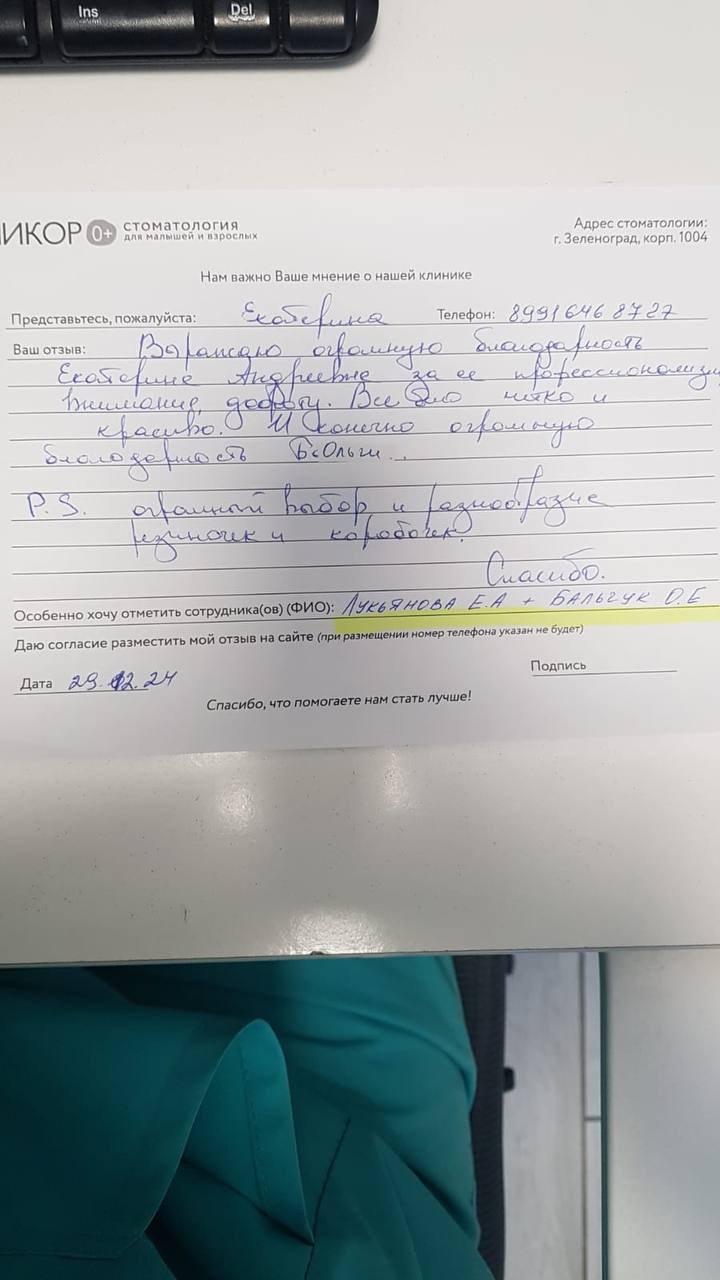 Ins
Del
ИКОР 0+ СТОМАТОЛОГИЯ
для малышей и взрослых
Адрес стоматологии:
г. Зеленоград, корп. 1004
Нам важно Ваше мнение о нашей клинике
Представьтесь, пожалуйста: Екатерина Телефон: 89916468727
Ваш отзыв: Выражаю огромную благодарность
Екатерине Андреевне за ее профессионализм
внимание, доброту. Все было четко и
красиво. И конечно огромную
благодарность Ольги...
P.S. огромный выбор и разнообразие
резиночек и коробочек.
Спасибо.
Особенно хочу отметить сотрудника(ов) (ФИО): ЛУКЬЯНОВА Е.А + БАЛЬЧУК О.Е
Даю согласие разместить мой отзыв на сайте (при размещении номер телефона указан не будет)
Дата 29.12.24 Подпись
Спасибо, что помогаете нам стать лучше!